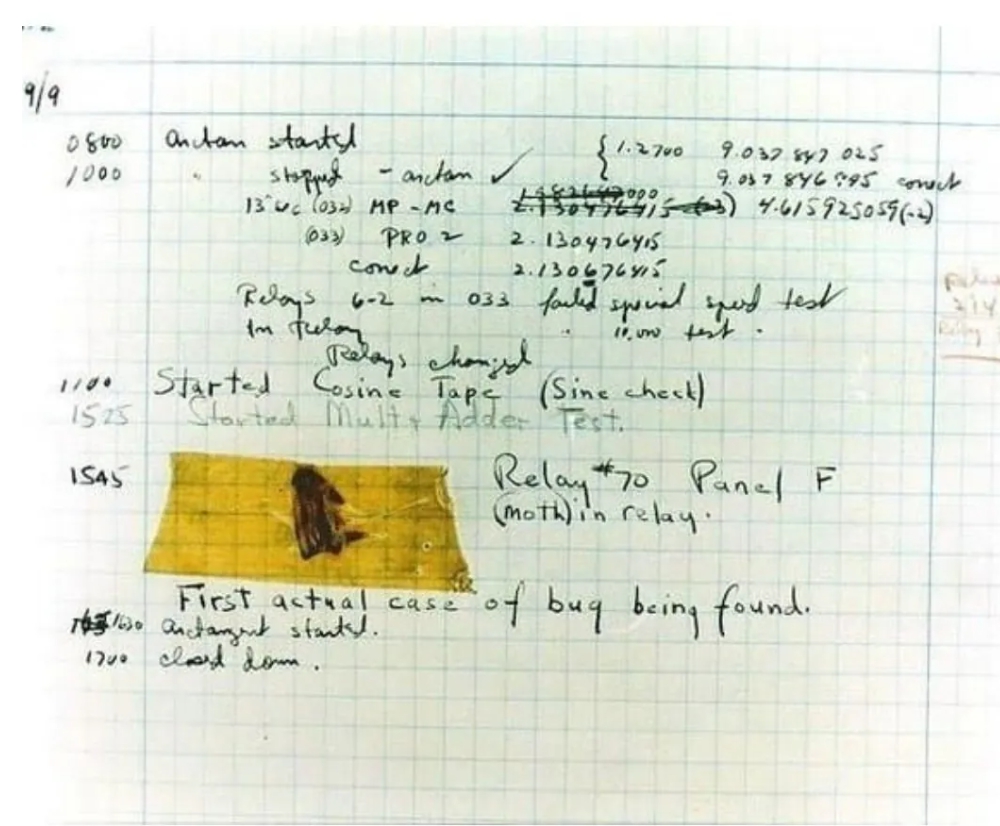 9/9
0800 Arctan started {1.2700 9.037 847 025
1000 " stopped - arctan ✓ 9.037 846 795 correct
13"uc (032) MP - MC 2.130476415 (-3) 4.615925059(-2)
(033) PRO 2 2.130476415
correct 2.130676415
Relays 6-2 in 033 failed special speed test
In Relay " 10,000 test .
Relays changed
1100 Started Cosine Tape (Sine check)
1525 Started Mult+ Adder Test.
1545 Relay #70 Panel F
(moth) in relay.
First actual case of bug being found.
1630 Arctangent started.
1700 closed down.